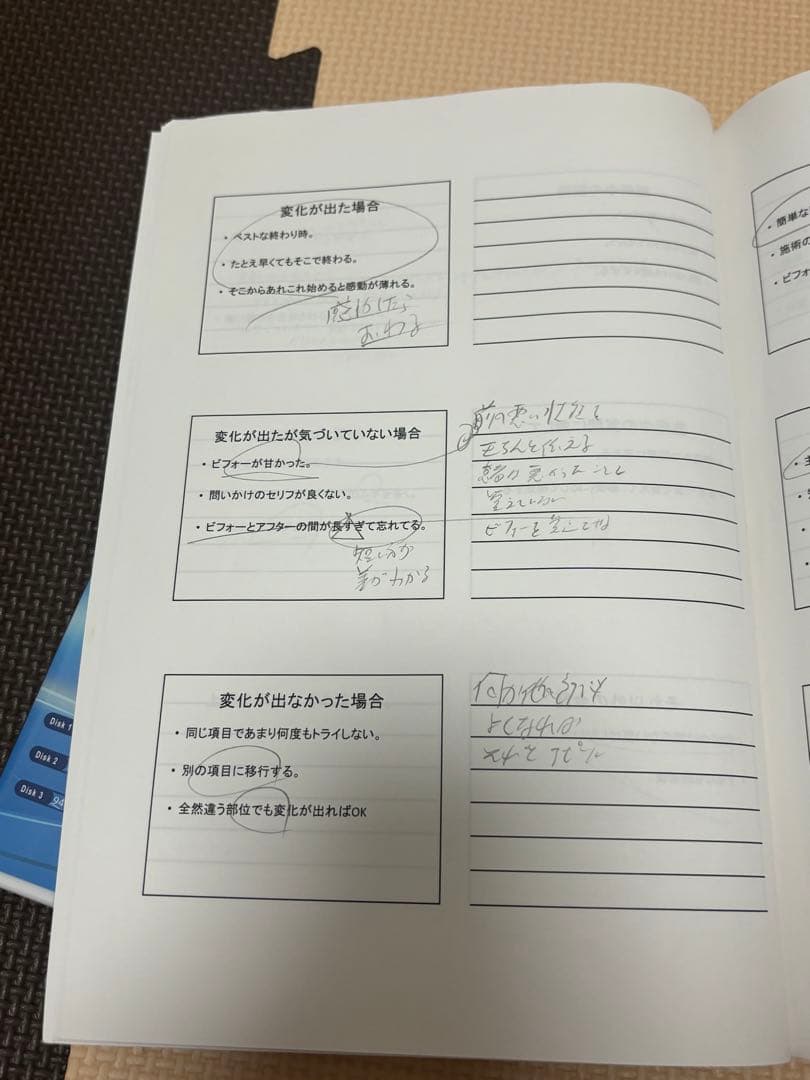 変化が出た場合
・ベストな終わり時。
・たとえ早くてもそこで終わる。
・そこからあれこれ始めると感動が薄れる。
おわる
変化が出たが気づいていない場合
・ビフォーが甘かった。
・問いかけのセリフが良くない。
・ビフォーとアフターの間が長すぎて忘れてる。
短い方が
差がわかる
前の悪い状態を
きちんと伝える
患者が悪かったことを
覚えていない
ビフォーを
変化が出なかった場合
・同じ項目であまり何度もトライしない。
・別の項目に移行する。
・全然違う部位でも変化が出ればOK
何か他の
よくなれば
それを アピール
・簡単な
・施術の
・ビフォ
Disk 1
Disk 2
Disk 3